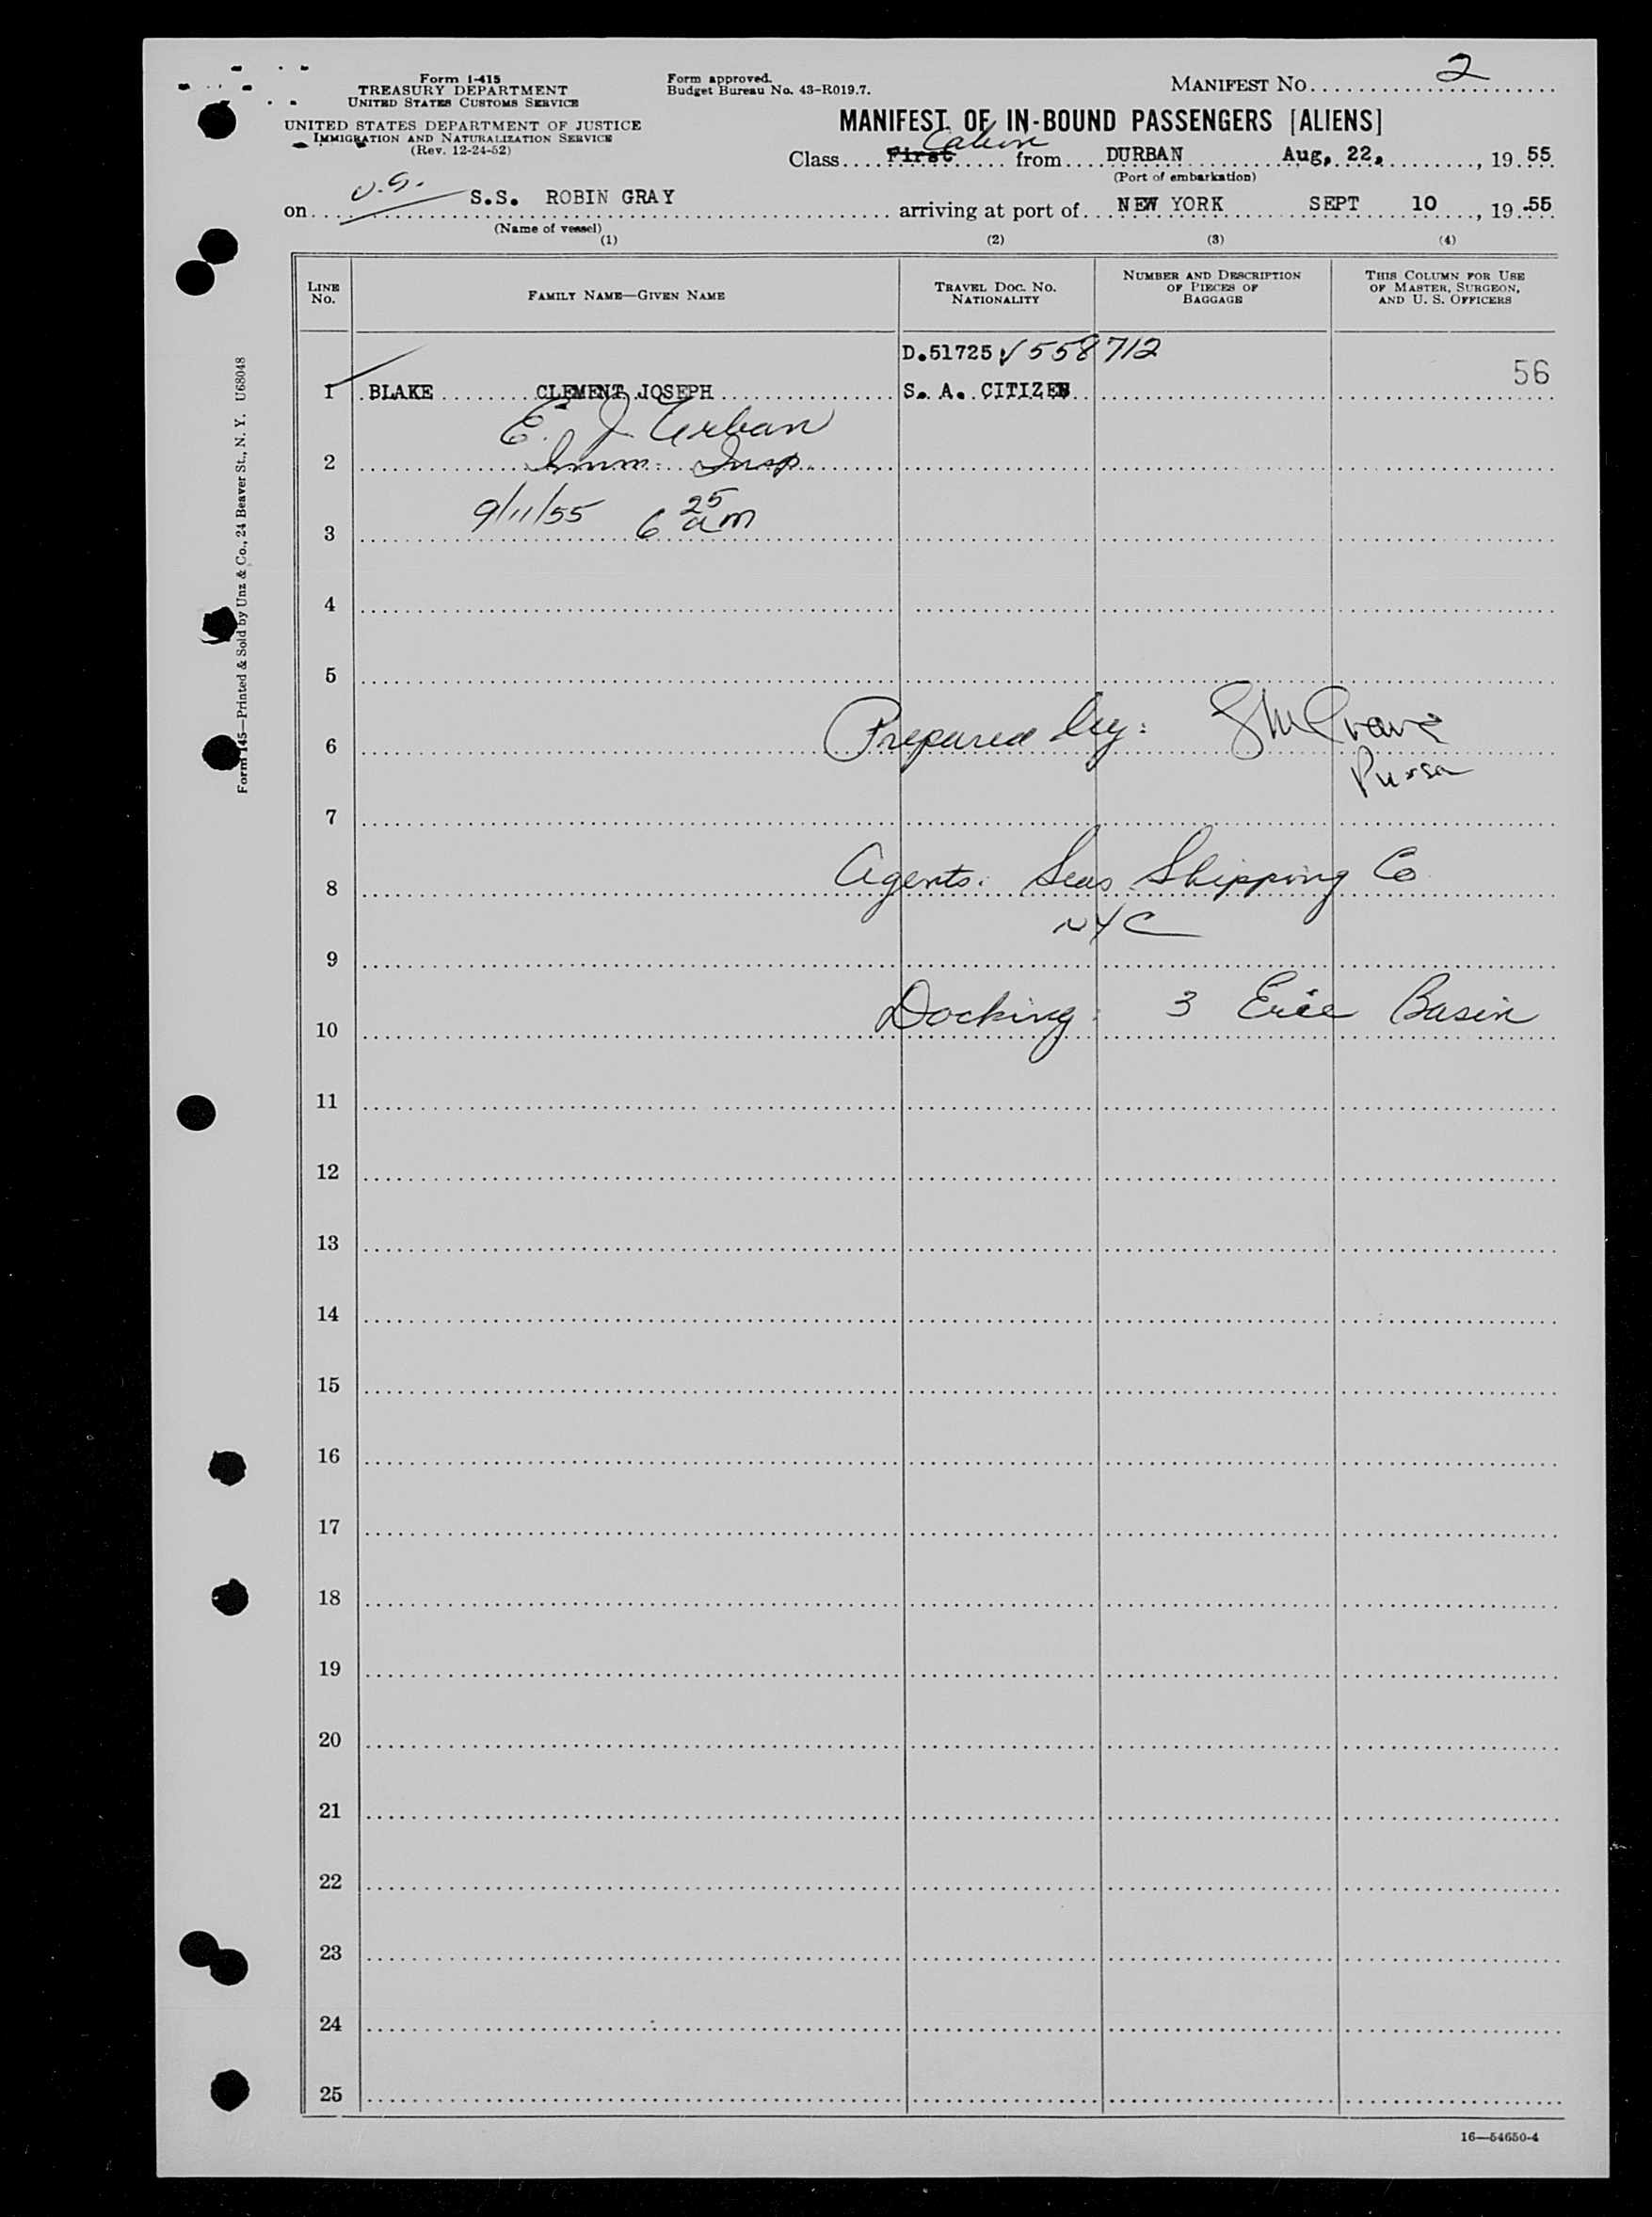 Form I-415
TREASURY DEPARTMENT
UNITED STATES CUSTOMS SERVICE
UNITED STATES DEPARTMENT OF JUSTICE
IMMIGRATION AND NATURALIZATION SERVICE
(Rev. 12-24-52)
Form approved.
Budget Bureau No. 43-R019.7.
MANIFEST NO. 2
MANIFEST OF IN-BOUND PASSENGERS [ALIENS]
Cabin
Class First from DURBAN Aug, 22, , 19 55
(Port of embarkation)
on U.S. S.S. ROBIN GRAY arriving at port of NEW YORK SEPT 10 , 19 55
(Name of vessel)
(1) (2) (3) (4)
LINE NO. FAMILY NAME—GIVEN NAME TRAVEL DOC. NO. NATIONALITY NUMBER AND DESCRIPTION OF PIECES OF BAGGAGE THIS COLUMN FOR USE OF MASTER, SURGEON, AND U. S. OFFICERS
D.51725 V558712
56
1 BLAKE CLEMENT JOSEPH S. A. CITIZEN
E. J. Urban
2 Imm. Insp.
3 9/11/55 6 25 am
4
5
6 Prepared by:
7
8 Agents: Seas Shipping Co
NYC
9
10 Docking: 3 Erie Basin
11
12
13
14
15
16
17
18
19
20
21
22
23
24
25
16—54650-4
Form 145—Printed & Sold by Unz & Co., 24 Beaver St., N. Y. U68048